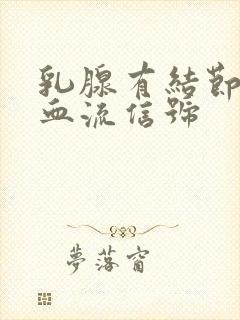 乳腺有結節
血流信號
夢落窗